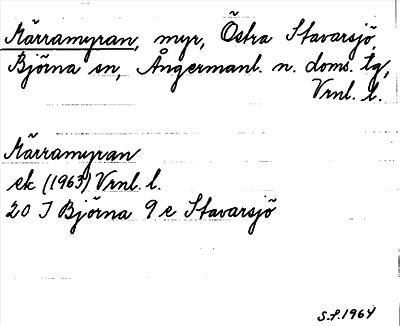 Märramyran, myr, Östra Stavarsjö,
Björna sn, Ångermanl. n. doms. tg,
Vrnl. l.
Märramyran
ek (1963) Vrnl. l.
20 I Björna 9 e Stavarsjö
S.F. 1964